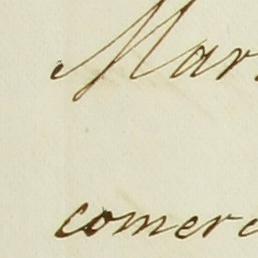 Mar
comer